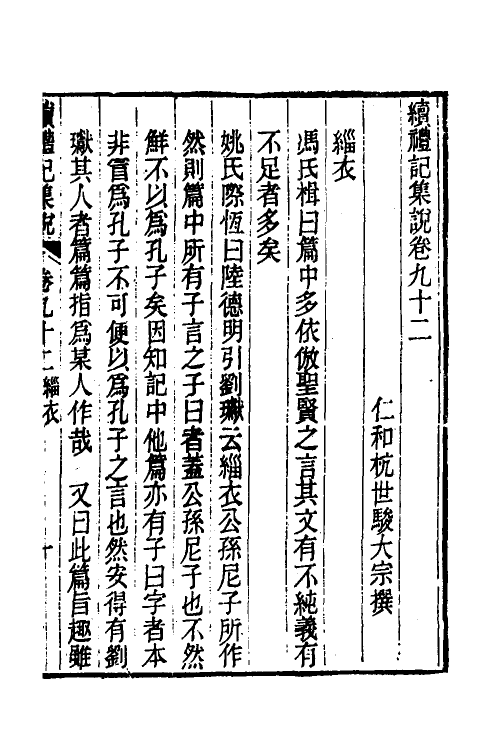 續禮記集說卷九十二
仁和杭世駿大宗撰
緇衣
馮氏椅曰篇中多依倣聖賢之言其文有不純義有
不足者多矣
姚氏際恆曰陸德明引劉瓛云緇衣公孫尼子所作
然則篇中所有子言之子曰者蓋公孫尼子也不然
鮮不以為孔子矣因知記中他篇亦有子曰字者本
非嘗為孔子不可便以為孔子之言也然安得有劉
瓛其人者篇篇指為某人作哉　又曰此篇旨趣雖
續禮記集說　卷九十二緇衣　一